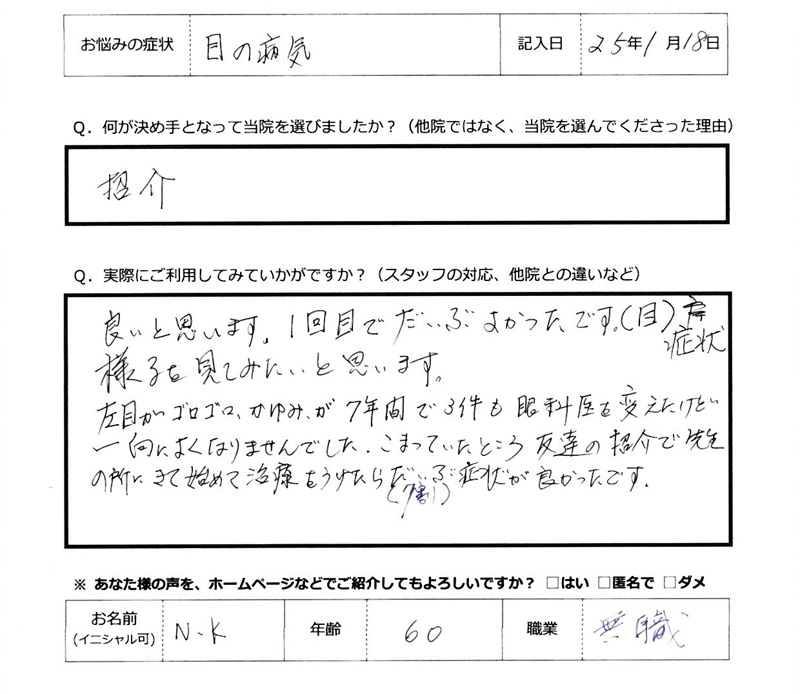 お悩みの症状 目の病気 記入日 25年1月18日
Q．何が決め手となって当院を選びましたか？（他院ではなく、当院を選んでくださった理由）
招介
Q．実際にご利用してみていかがですか？（スタッフの対応、他院との違いなど）
良いと思います。1回目でだいぶよかったです。(目)
症状
様子を見てみたいと思います。
左目がゴロゴロ、かゆみ、が7年間で3件も眼科医を変えたけど
一向によくなりませんでした。こまっていたところ友達の招介で先生
の所にきて始めて治療をうけたらだいぶ症状が良かったです。
(7割)
※ あなた様の声を、ホームページなどでご紹介してもよろしいですか？ □はい □匿名で □ダメ
お名前 (イニシャル可) N.K 年齢 60 職業 無職